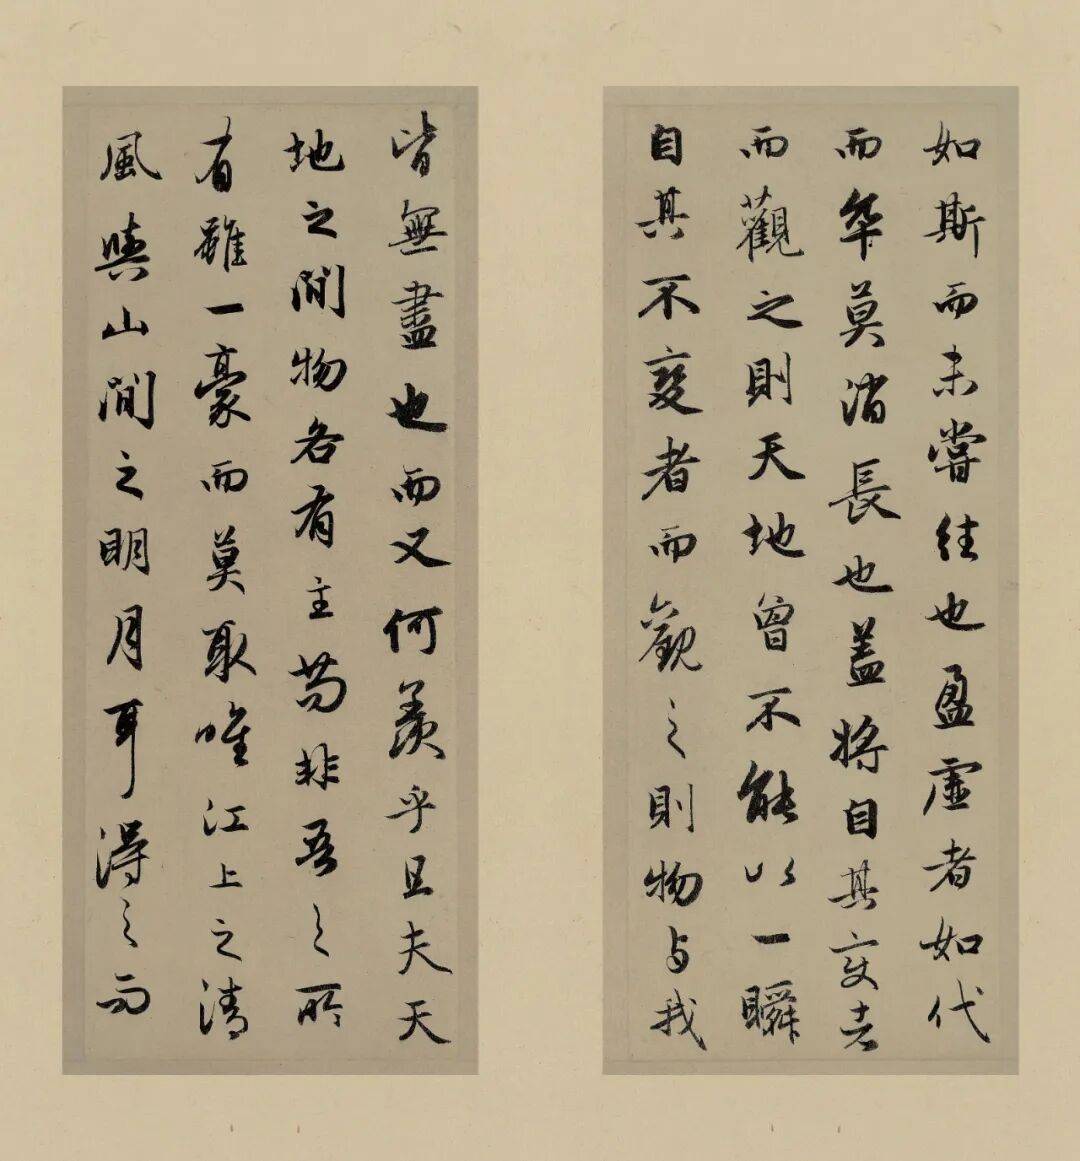 如斯而未嘗往也盈虛者如代
而卒莫消長也蓋將自其變者
而觀之則天地曾不能以一瞬
自其不變者而觀之則物與我
皆無盡也而又何羨乎且夫天
地之間物各有主苟非吾之所
有雖一豪而莫取唯江上之清
風與山間之明月耳得之而